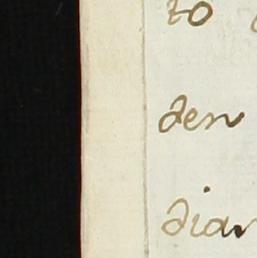 to
den
dian